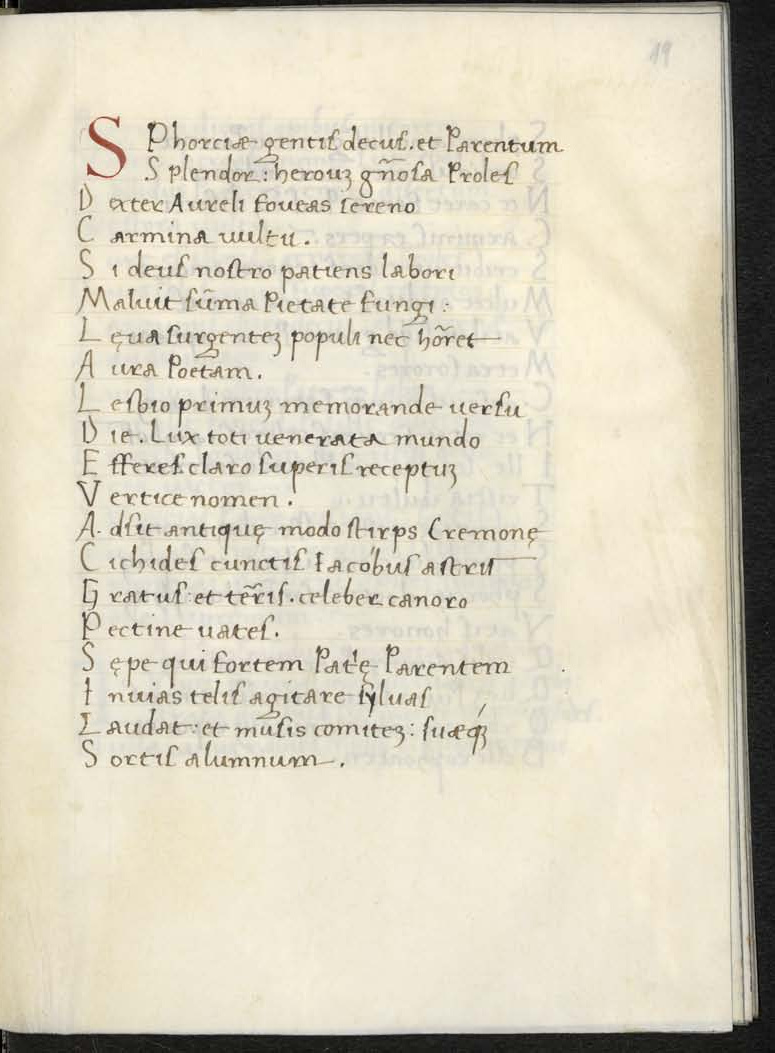 19
SPhorciæ gentis decus. et Parentum
Splendor: herouꝫ gn̄osa Proles
Dexter Aureli foueas sereno
Carmina uultu.
Si deus nostro patiens labori
Maluit sūma Pietate fungi:
Lęua surgenteꝫ populi nec hōret
Aura Poetam.
Lesbio primuꝫ memorande uersu
Die. Lux toti uenerata mundo
Efferes claro superis receptuꝫ
Vertice nomen.
Adsit antiquę modo stirps Cremonę
Cichides cunctis Iacóbus astris
Gratus: et tēris. celeber canoro
Pectine uates.
Sępe qui fortem Patꝛę Parentem
Inuias telis agitare syluas
Laudat: et musis comiteꝫ: suæqꝫ́
Sortis alumnum.